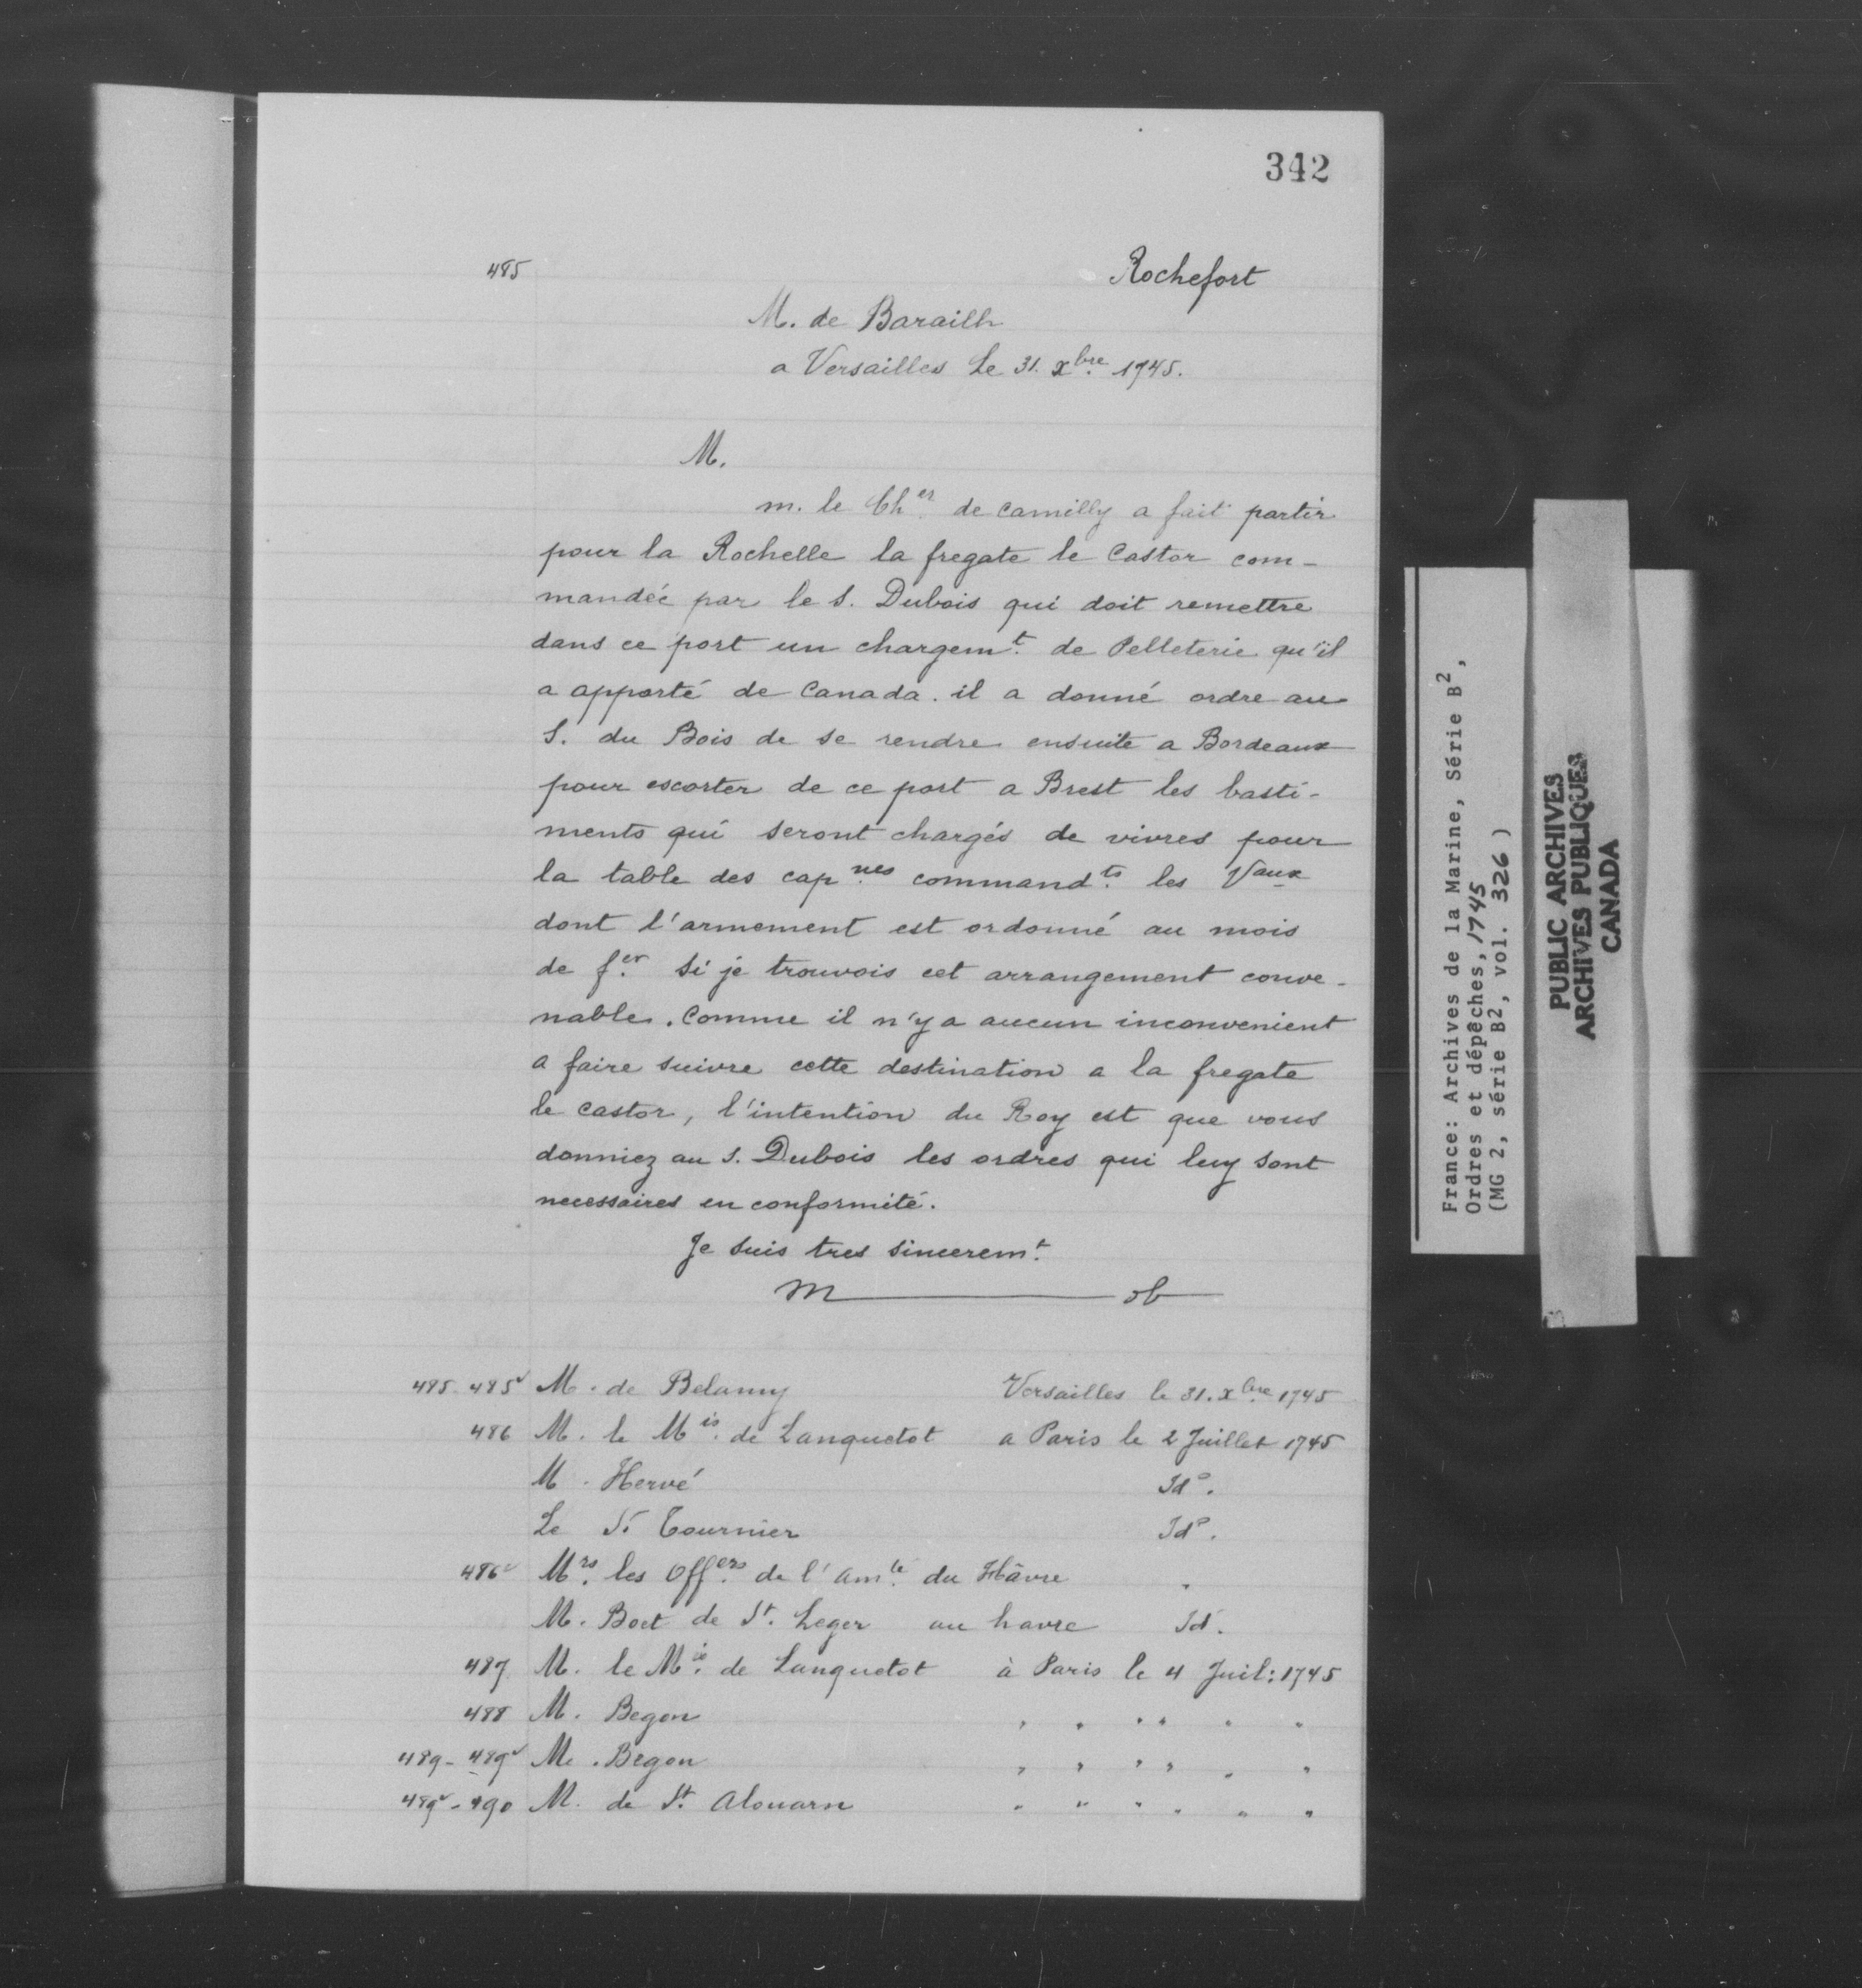 342
485 Rochefort
M. de Barailh
a Versailles Le 31. xbre 1745.
M.
m. le Cher de camilly a fait partir
pour la Rochelle la fregate le Castor com-
mandée par le S. Dubois qui doit remettre
dans ce port un chargemt. de Pelleterie qu'il
a apporté de Canada. il a donné ordre au
S. du Bois de se rendre ensuite a Bordeaux
pour escorter de ce port a Brest les basti-
ments qui seront chargés de vivres pour
la table des capnes commandts. les Vaux
dont l'armement est ordonné au mois
de fer. Si je trouvois cet arrangement conve-
nable. Comme il n'y a aucun inconvenient
a faire suivre cette destination a la fregate
le castor, l'intention du Roy est que vous
donniez au S. Dubois les ordres qui luy sont
necessaires en conformité.
Je suis tres sinceremt.
M
485-485v M. de Belamy Versailles le 31. xbre 1745
486 M. le Mis. de Languetot a Paris le 2 Juillet 1745
M. Hervé Ido.
Le Sr Tournier Ido.
486v Mrs. les Offers. de l'amté. du Hâvre "
M. Boet de St. Leger au havre Id.
487 M. le Mis. de Languetot à Paris le 4 Juil: 1745
488 M. Begon " " " " " "
489-489v M. Begon " " " " " "
489v-490 M. de St. Alouarn " " " " " "
France: Archives de la Marine, Série B2,
Ordres et dépêches, 1745
(MG 2, série B2, vol. 326)
PUBLIC ARCHIVES
ARCHIVES PUBLIQUES
CANADA